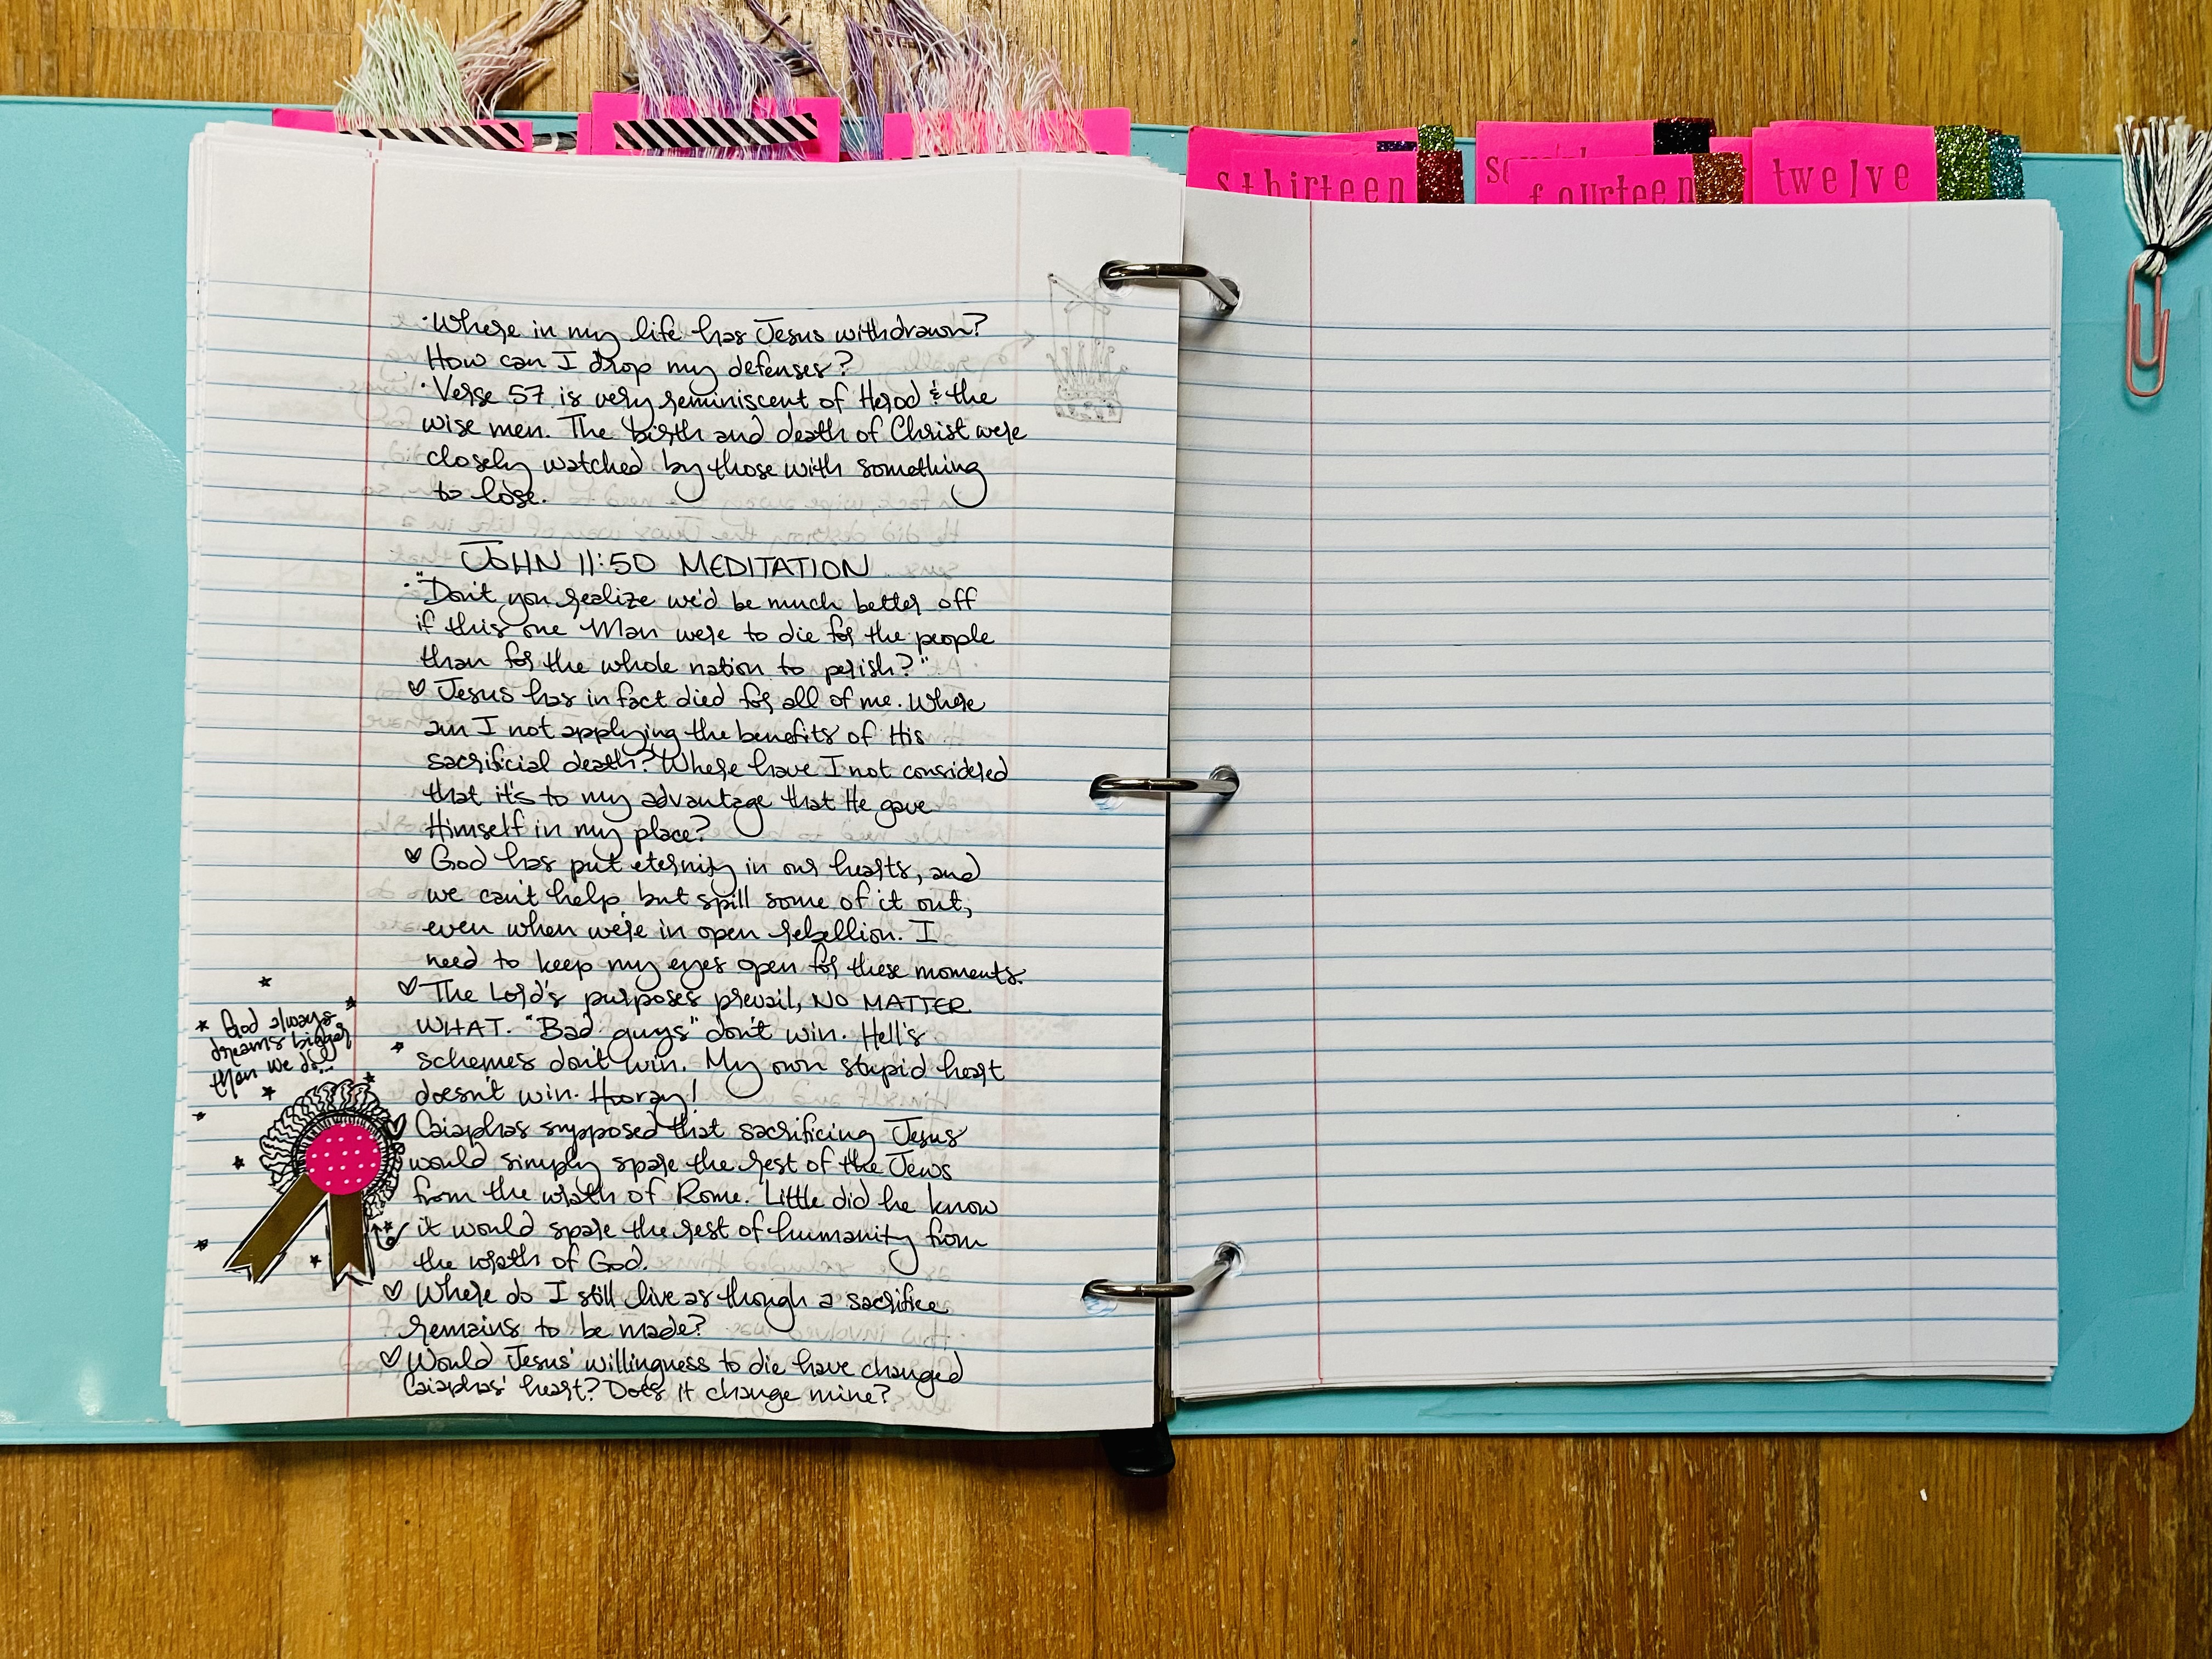 thirteen
fourteen
twelve
·Where in my life has Jesus withdrawn?
How can I drop my defenses?
·Verse 57 is very reminiscent of Herod & the
wise men. The birth and death of Christ were
closely watched by those with something
to lose.
JOHN 11:50 MEDITATION
·"Don't you realize we'd be much better off
if this one Man were to die for the people
than for the whole nation to perish?"
♡ Jesus has in fact died for all of me. Where
am I not applying the benefits of His
sacrificial death? Where have I not considered
that it's to my advantage that He gave
Himself in my place?
♡ God has put eternity in our hearts, and
we can't help but spill some of it out,
even when we're in open rebellion. I
need to keep my eyes open for these moments.
♡ The Lord's purposes prevail, NO MATTER
WHAT. "Bad guys" don't win. Hell's
schemes don't win. My own stupid heart
doesn't win. Hooray!
♡ Caiaphas supposed that sacrificing Jesus
would simply spare the rest of the Jews
from the wrath of Rome. Little did he know
it would spare the rest of humanity from
the wrath of God.
♡ Where do I still live as though a sacrifice
remains to be made?
♡ Would Jesus' willingness to die have changed
Caiaphas' heart? Does it change mine?
★ God always
dreams bigger
than we do...